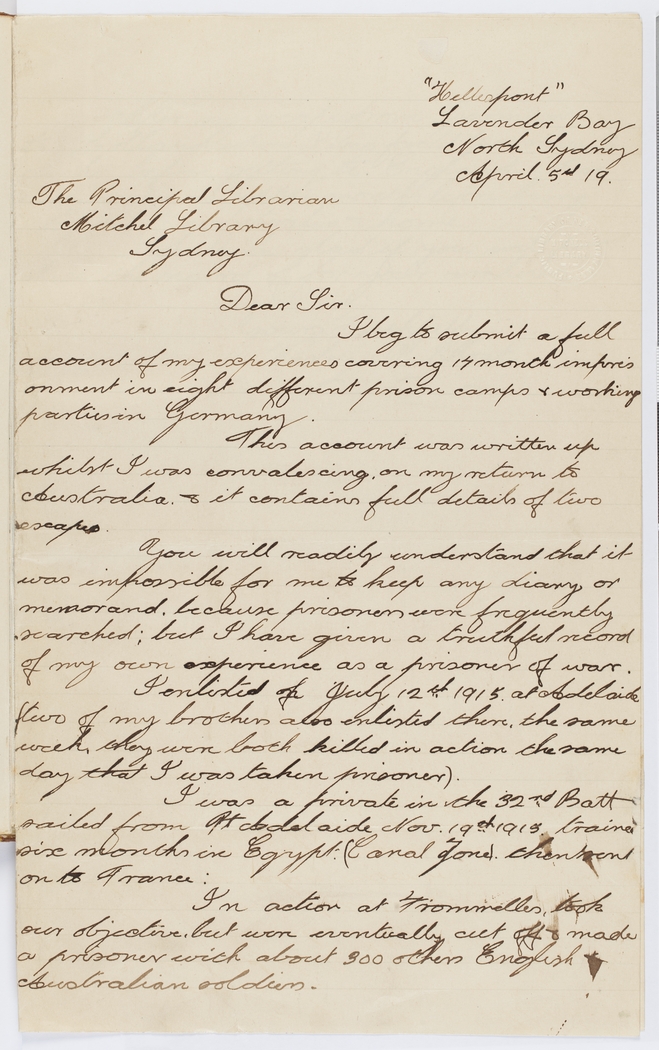 "Hellespont"
Lavender Bay
North Sydney
April. 5th 19.
The Principal Librarian
Mitchel Library
Sydney.
Dear Sir.
I beg to submit a full
account of my experiences covering 17 month impris
onment in eight different prison camps & working
parties in Germany.
This account was written up
whilst I was convalescing, on my return to
Australia. & it contains full details of two
escapes.
You will readily understand that it
was impossible for me to keep any diary or
memorand, because prisoners were frequently
searched; but I have given a truthful record
of my own experience as a prisoner of war.
I enlisted on July 12th 1915. at Adelaide
(two of my brothers also enlisted there, the same
week, they were both killed in action the same
day that I was taken prisoner).
I was a private in the 32nd Batt
sailed from Pt Adelaide Nov. 19th 1915, trained
six months in Egypt. (Canal Zone). then sent
on to France:
In action at Frommelles, took
our objective, but were eventually cut off & made
a prisoner with about 300 others English &
Australian soldiers.